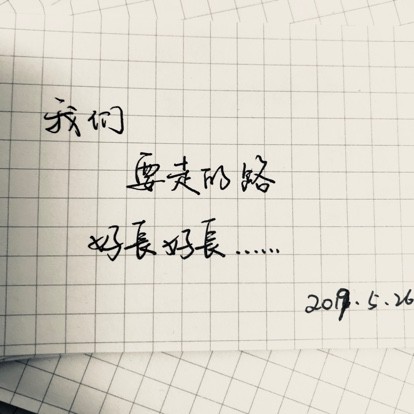 我们
要走的路
好長好長……
2019.5.26